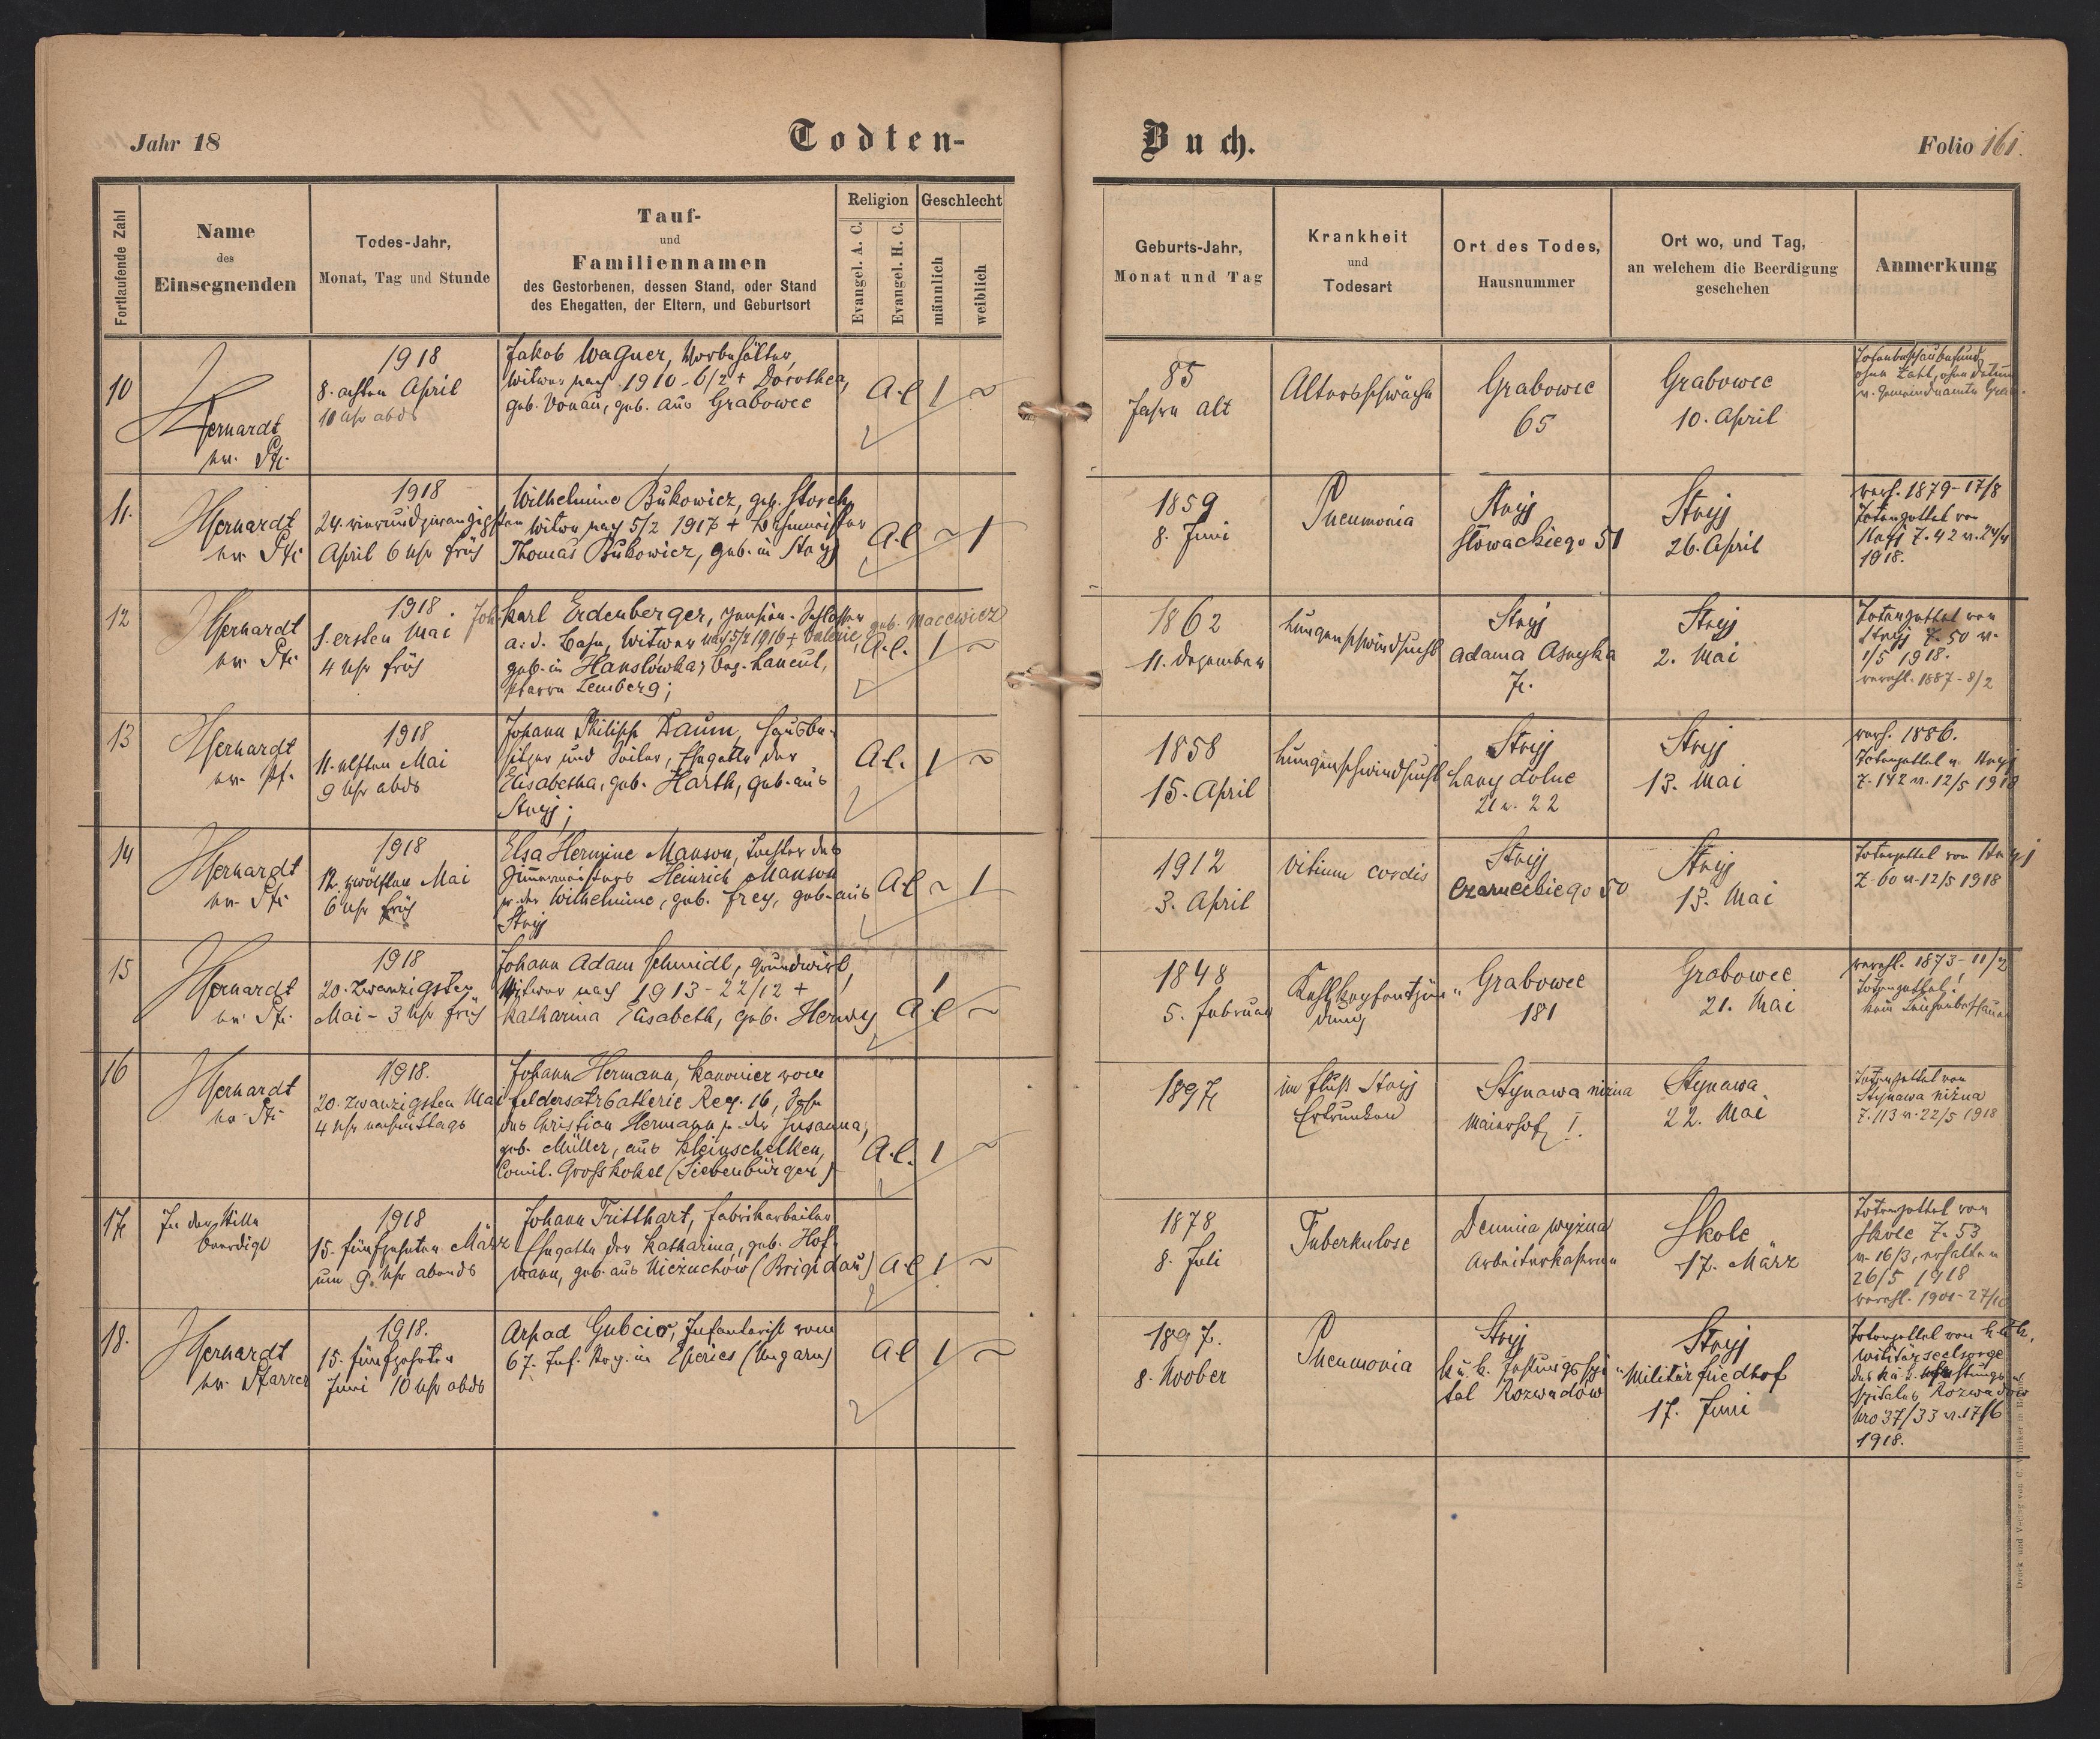 Jahr 18
Todten-
Buch.
Folio 161.
Fortlaufende Zahl
Name
des
Einsegnenden
Todes-Jahr,
Monat, Tag und Stunde
Tauf-
und
Familiennamen
des Gestorbenen, dessen Stand, oder Stand
des Ehegatten, der Eltern, und Geburtsort
Religion
Evangel. A. C.
Evangel. H. C.
Geschlecht
männlich
weiblich
Geburts-Jahr,
Monat und Tag
Krankheit
und
Todesart
Ort des Todes,
Hausnummer
Ort wo, und Tag,
an welchem die Beerdigung
geschehen
Anmerkung
10
1918
8. achten April
10 Uhr abds
Jakob Wagner,
Witwer nach 1910-6/2 + Dorothea,
geb. Vonau, geb. aus Grabowec
A.C 1 ~
85
Jahre alt
Altersschwäche
Grabowec
65
Grabowec
10. April
Totenbeschaubefund
ohne Zahl, ohne Datum
v. Gemeindeamte
11.
1918
24. vierundzwanzigsten
April 6 Uhr früh
Wilhelmine Bukowicz, geb. Storch,
Witwe nach 5/2 1917 +
Thomas Bukowicz, geb. in Stryj
A.C ~ 1
1859
8. Juni
Pneumonia
Stryj
Słowackiego 51
Stryj
26. April
1879-17/8
Totenzettel von
Stryj Z. 42 v. 24/4
1918.
12
1918.
1. ersten Mai
4 Uhr früh
Joh. Karl Erdenberger, pension. Schlosser
a. d. Bahn, Witwer nach 5/2 1916 + Valerie, geb. Macewicz
geb. in Hanslówka, Bez. Lancut,
Pfarre Lemberg;
A.C. 1 ~
1862
11. Dezember
Lungenschwindsucht
Stryj
Adama Asnyka
7.
Stryj
2. Mai
Totenzettel von
Stryj Z. 50 v.
1/5 1918.
verehl. 1887-8/2
13
1918
11. elften Mai
9 Uhr abds
Johann Philipp Daum, Hausbe-
sitzer und Seiler, Ehegatte der
Elisabetha, geb. Harth, geb. aus
Stryj;
A.C. 1 ~
1858
15. April
Lungenschwindsucht
Stryj
Łany dolne
22
Stryj
13. Mai
1886.
Totenzettel v. Stryj
Z. 142 v. 12/5 1918
14
1918
12. zwölften Mai
6 Uhr früh
Elsa Hermine Manson, Tochter des
Zimmermeisters Heinrich Manson
u. der Wilhelmine, geb. Frey, geb. aus
Stryj
A.C ~ 1
1912
3. April
Vitium cordis
Stryj
Czarneckiego 50
Stryj
13. Mai
Totenzettel von Stryj
Z. 60 v. 12/5 1918
15
1918
20. Zwanzigsten
Mai - 3 Uhr früh
Johann Adam Schmidt, Grundwirt,
Witwer nach 1913-22/12 +
Katharina Elisabeth, geb. Herwy
A.C 1 ~
1848
5. Februar
Kehlkopfentzün-
dung
Grabowec
181
Grabowec
21. Mai
verehl. 1873-11/2
Totenzettel.
kein Leichenbeschauer
16
1918.
20. zwanzigsten Mai
4 Uhr nachmittags
Johann Hermann, Kanonier vom
Feldersatzbatterie Reg. 16, Sohn
des Christian Hermann u. der Susanna,
geb. Müller, aus Kleinschelken,
Comit. Grosskokel (Siebenbürgen)
A.C. 1 ~
1897
im Fluss Stryj
Ertrunken
Stynawa niżna
Maierhof I.
Stynawa
22. Mai
Totenzettel von
Stynawa niżna
Z. 113 v. 22/5 1918
17
In der Stille
beerdigt
1918
15. fünfzehnten März
um 9 Uhr abends
Johann Tritthart, Fabriksarbeiter
Ehegatte der Katharina, geb. Hof-
mann, geb. aus Nieżuchów (Brigidau)
A.C 1 ~
1878
8. Juli
Tuberkulose
Demnia wyżna
Arbeiterkaserne
Skole
17. März
Totenzettel von
Skole Z. 53
v. 16/3, erhalten
26/5 1918
verehl. 1901-27/10
18.
1918.
15. fünfzehnten
Juni 10 Uhr abds
Arpad Gubcio, Infanterist vom
67. Inf. Reg. in Eperies (Ungarn)
A.C 1 ~
1897.
8. Novber
Pneumonia
Stryj
k. u. k. Festungsspi-
tal Rozwadów
Stryj
Militärfriedhof
17. Juni
Totenzettel von k. u. k.
Militärseelsorge
des k. u. k. Festungs-
spitales Rozwadów
Nro 37/33 v. 17/6
1918.